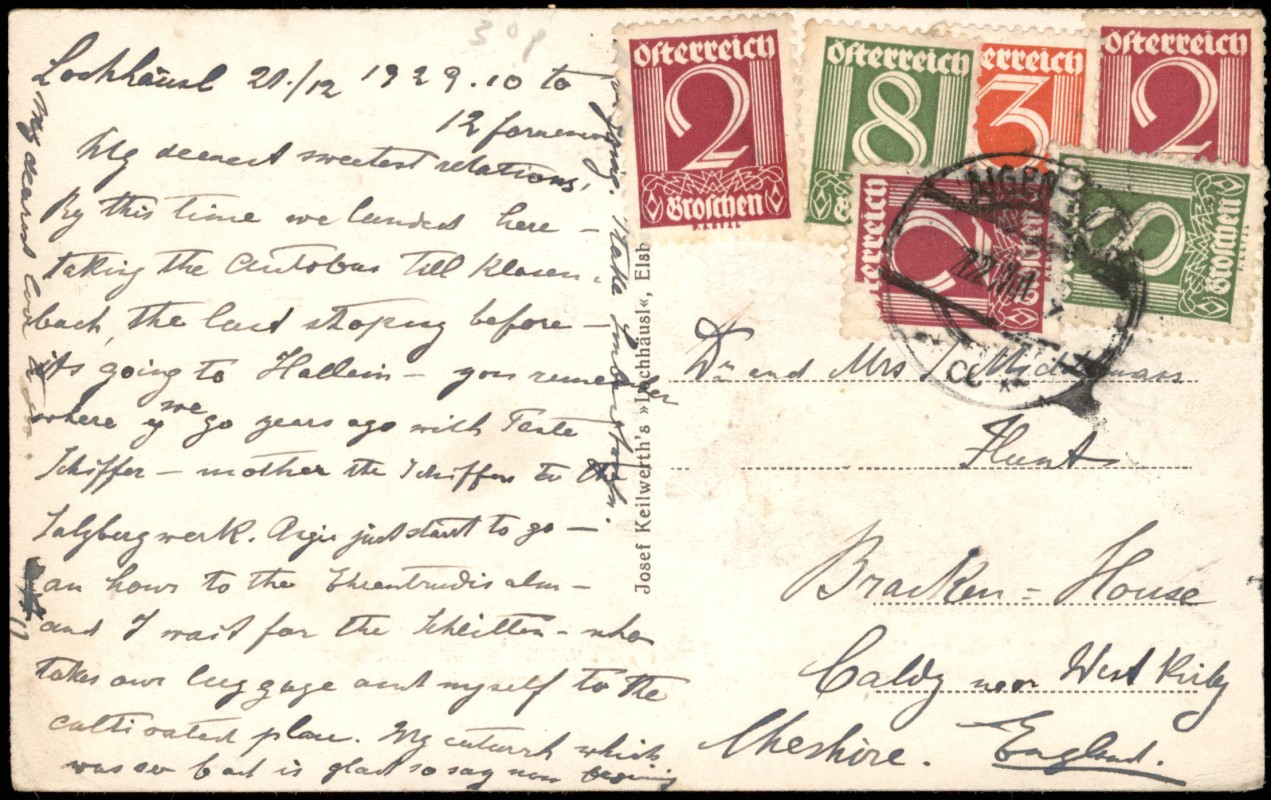 309
Lochhäusl 21./12 1929. 10 to
12
My deerest sweetest relations,
By this time we landed here –
taking the Autobus till Klosen
bach, the last stoping before –
it's going to Hallein – you remember
where we go years ago with Tante
Schiffer – mother the Schiffers to the
Salzbergwerk. Argie just start to go –
an hour to the Ehrentrudis alm –
and I wait for the Schlitten – who
takes our luggage and myself to the
cultivated place. My caturrh which
was so bad is glad to say now
My dearest love to
Take
Josef Keilwerth's »Lochhäusl«, Elsb
Österreich
2
Groschen
Österreich
8
G
erreich
3
Österreich
2
terreich
2
schen
8
Groschen
AIGEN
22.XII
Dr. and Mrs
Hunt
Bracken = House
Caldy near West Kirby
Cheshire. England.